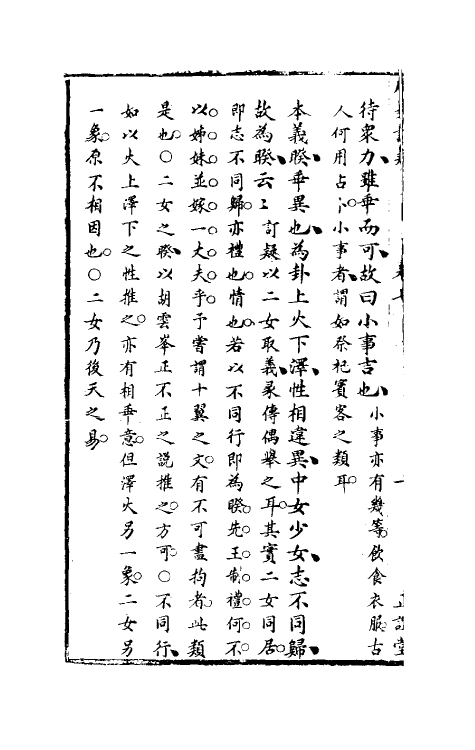 待衆力雖乖而可故曰小事吉也小事亦有幾等飲食衣服古
人何用占卜小事者謂如祭祀賓客之類耳
本義睽乖異也為卦上火下澤性相違異中女少女志不同歸
故為睽云云訂疑以二女取義彖傳偶舉之耳其實二女同居
即志不同歸亦禮也情也若以不同行即為睽先王制禮何不
以姊妹並嫁一丈夫乎予嘗謂十翼之文有不可盡拘者此類
是也○二女之睽以胡雲峯正不正之說推之方可○不同行
如以火上澤下之性推之亦有相乖意但澤火另一象二女另
一象原不相因也○二女乃後天之易